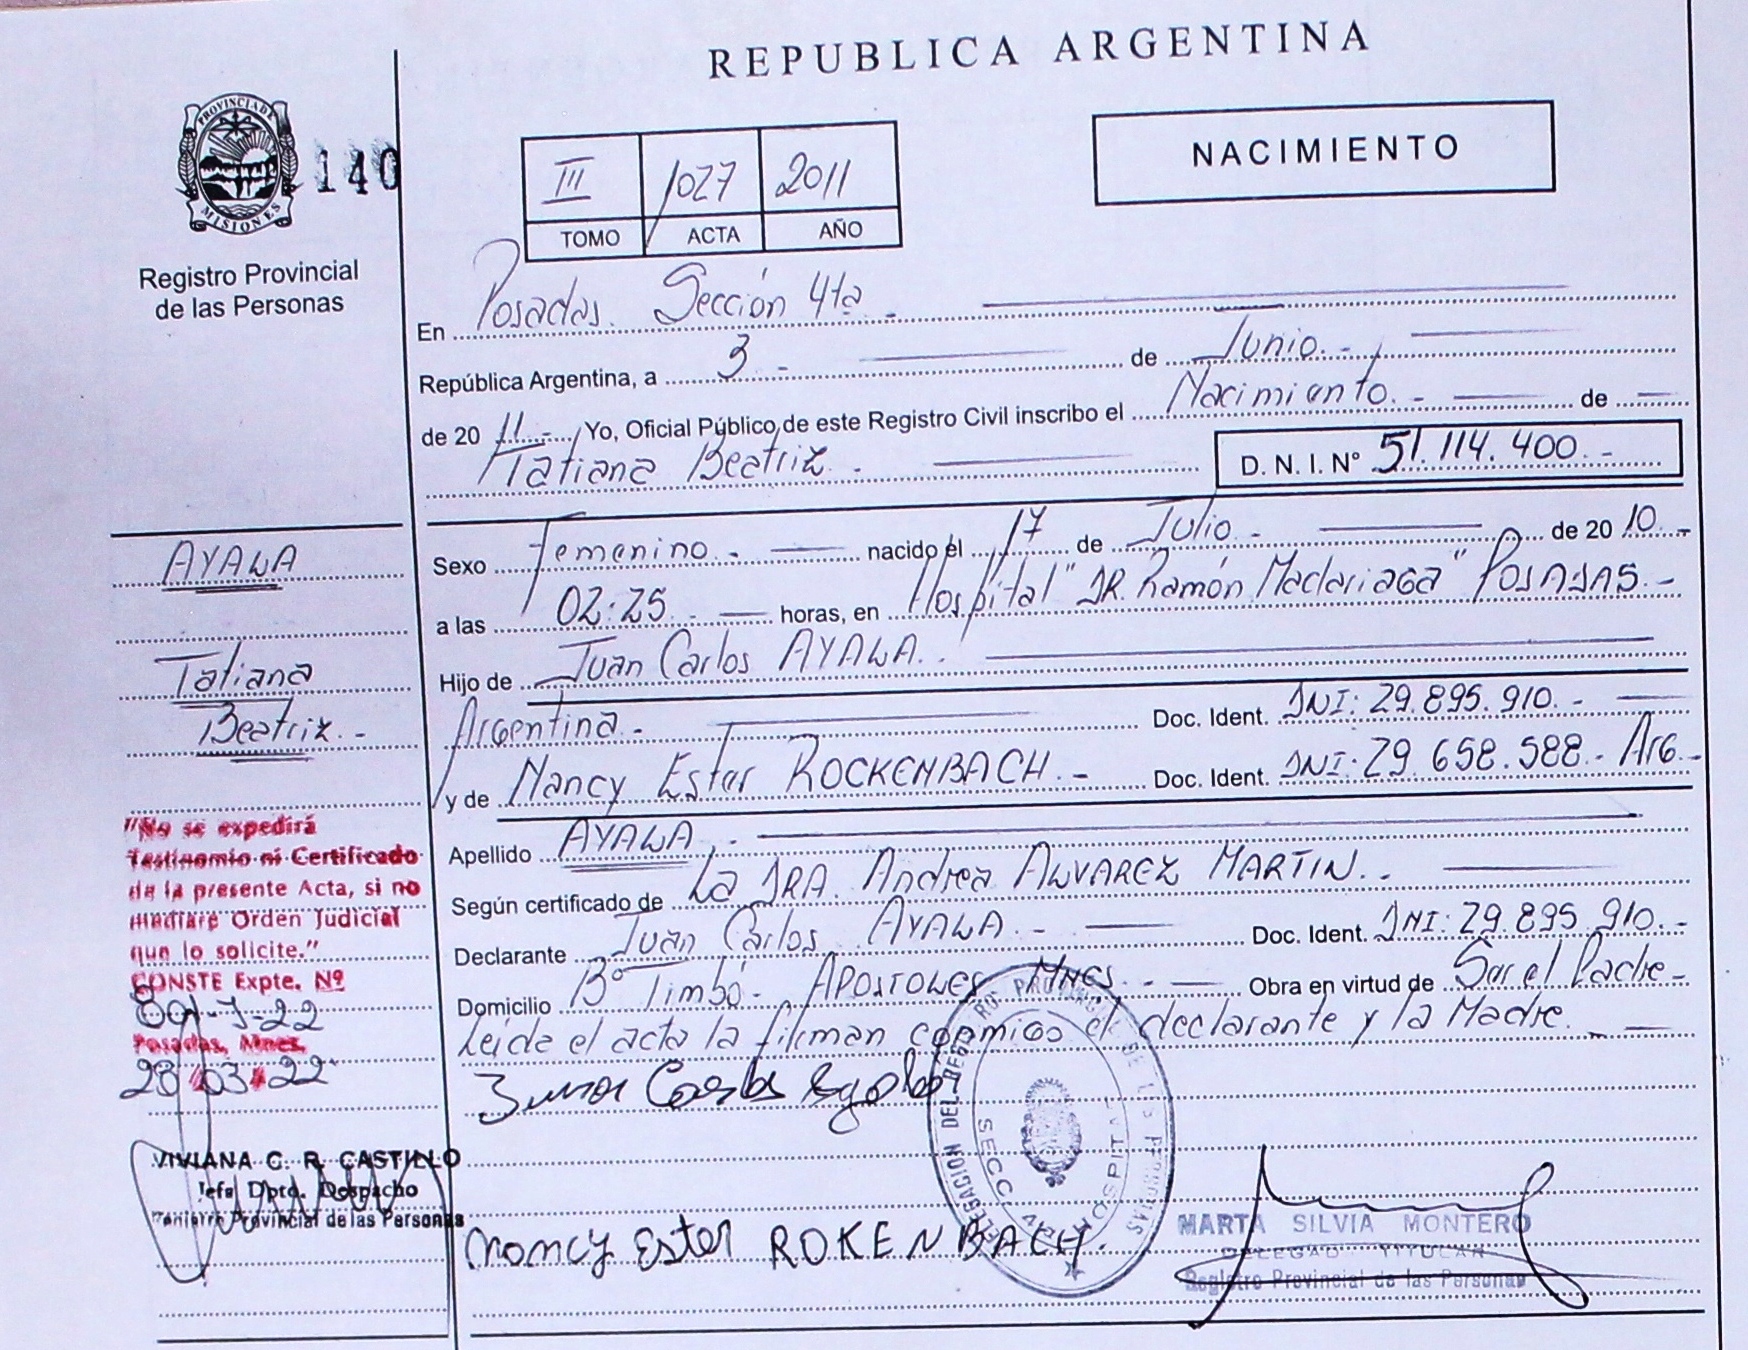 REPUBLICA ARGENTINA
PROVINCIA DE
MISIONES
140
Registro Provincial
de las Personas
III 1027 2011
TOMO ACTA AÑO
NACIMIENTO
En Posadas. Sección 4ta.-
República Argentina, a 3.- de Junio.-
de 20 11.- Yo, Oficial Público de este Registro Civil inscribo el Nacimiento.- de
Tatiana Beatriz.- D. N. I. Nº 51.114.400.-
AYALA
Tatiana
Beatriz.-
Sexo Femenino.- nacido el 17 de Julio.- de 20 10.-
a las 02:25.- horas, en Hospital "DR. Ramón Madariaga" POSADAS.-
Hijo de Juan Carlos AYALA.-
Argentina.- Doc. Ident. DNI: 29.895.910.-
y de Nancy Ester ROCKENBACH.- Doc. Ident. DNI: 29.658.588.- Arg.-
Apellido AYALA.-
Según certificado de La DRA. Andrea ALVAREZ MARTIN.-
Declarante Juan Carlos AYALA.- Doc. Ident. DNI: 29.895.910.-
Domicilio Bº Timbó- APOSTOLES Mnes.- Obra en virtud de Ser el Padre-
Leida el acta la firman conmigo el declarante y la Madre.-
"No se expedirá
Testimonio ni Certificado
de la presente Acta, si no
mediare Orden Judicial
que lo solicite."
CONSTE Expte. Nº
Posadas, Mnes.
28 03 22
VIVIANA C. R. CASTILLO
Jefa Dpto. Despacho
Provincial de las Personas
Juan Carlos Ayala
Nancy Ester ROKENBACH.
DELEGACION DEL REGISTRO PROVINCIAL DE LAS PERSONAS
SECC. 4ta HOSPITAL
MARTA SILVIA MONTERO
DELEGADA TITULAR
Registro Provincial de las Personas